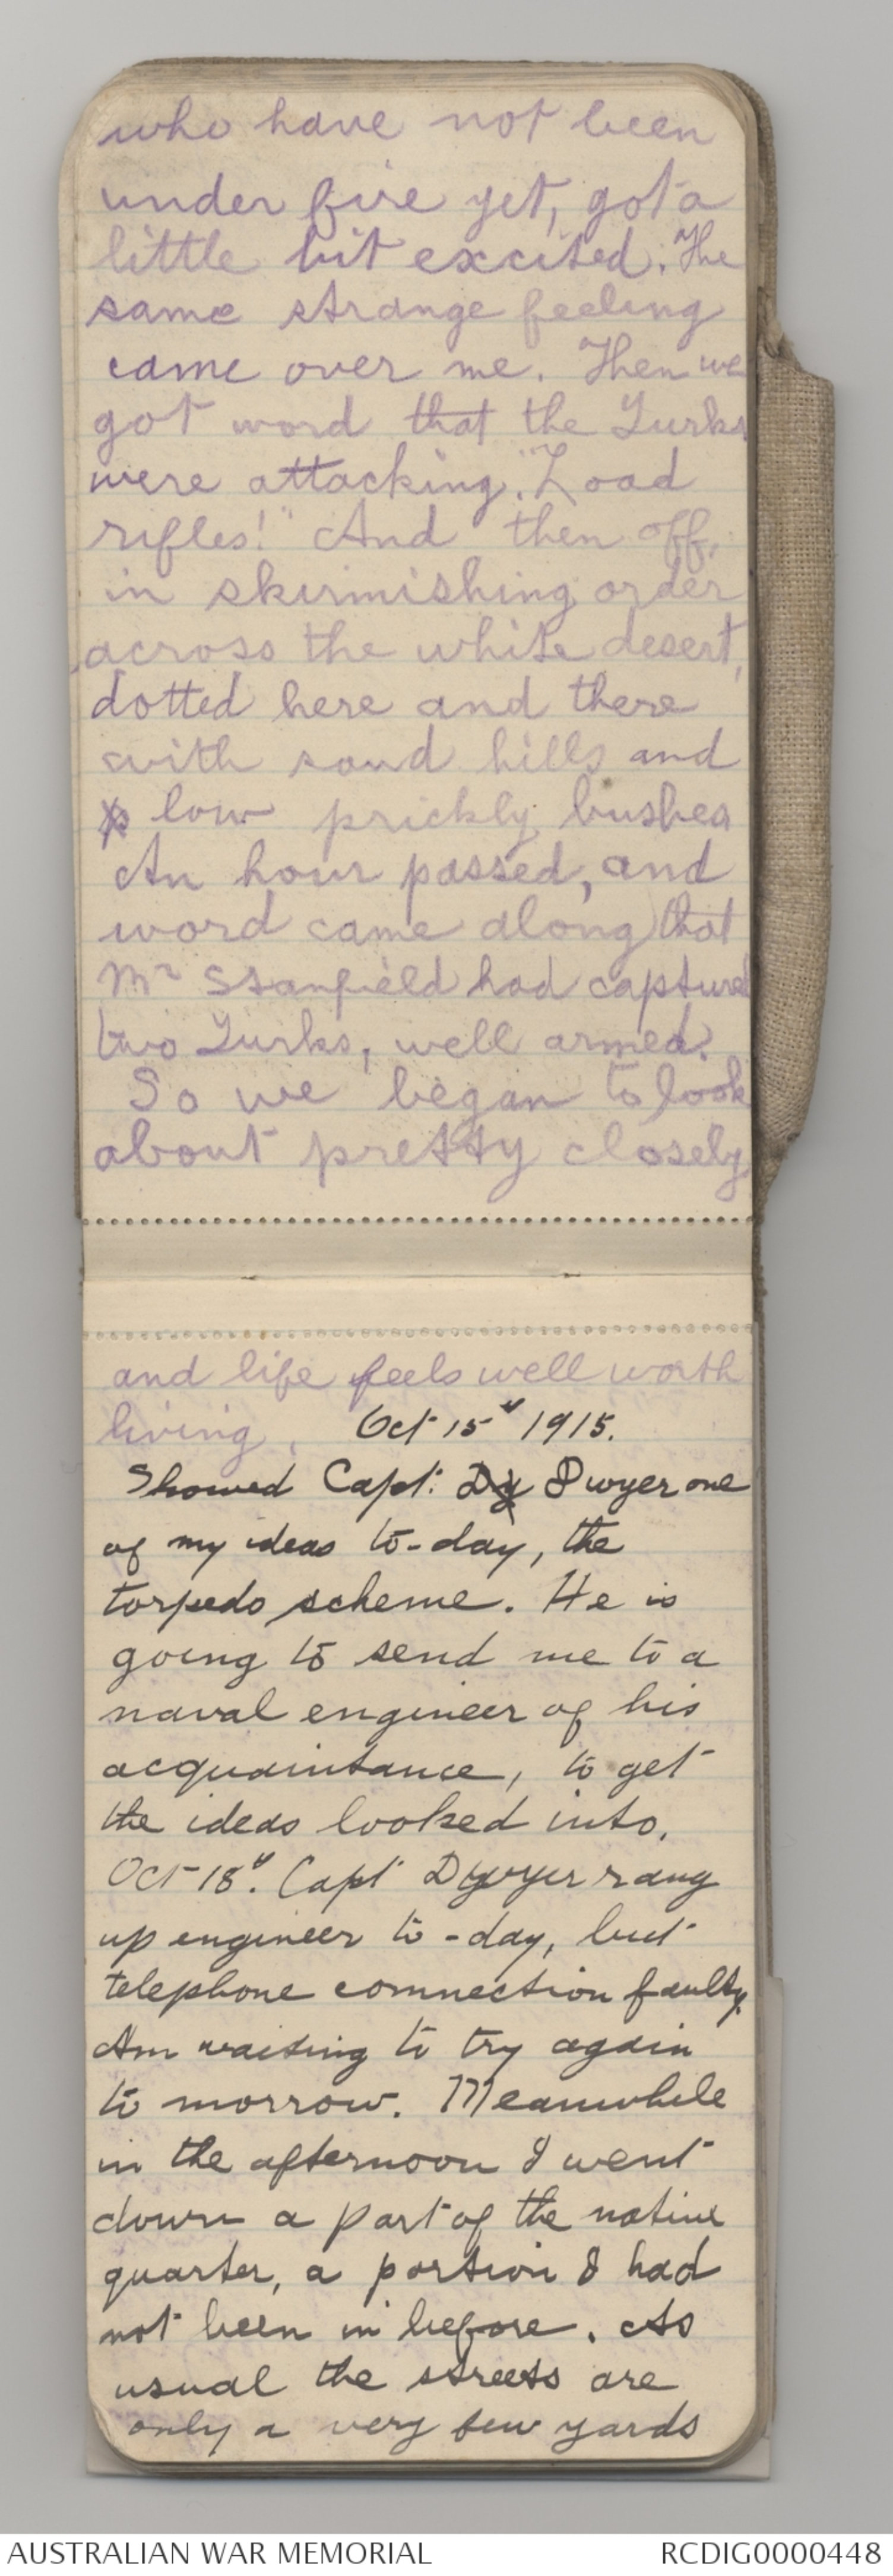 who have not been
under fire yet, got a
little bit excited. The
same strange feeling
came over me. Then we
got word that the Turks
were attacking. "Load
rifles!" And then off,
in skirmishing order
across the white desert,
dotted here and there
with sand hills and
low prickly bushes
An hour passed, and
word came along that
Mr Stanfield had captured
two Turks, well armed.
So we began to look
about pretty closely
and life feels well worth
living. Oct 15th 1915.
Showed Capt. Dwyer one
of my ideas to-day, the
torpedo scheme. He is
going to send me to a
naval engineer of his
acquaintance, to get
the ideas looked into.
Oct 18th. Capt Dwyer rang
up engineer to-day, but
telephone connection faulty.
Am waiting to try again
to morrow. Meanwhile
in the afternoon I went
down a part of the native
quarter, a portion I had
not been in before. As
usual the streets are
only a very few yards
AUSTRALIAN WAR MEMORIAL
RCDIG0000448